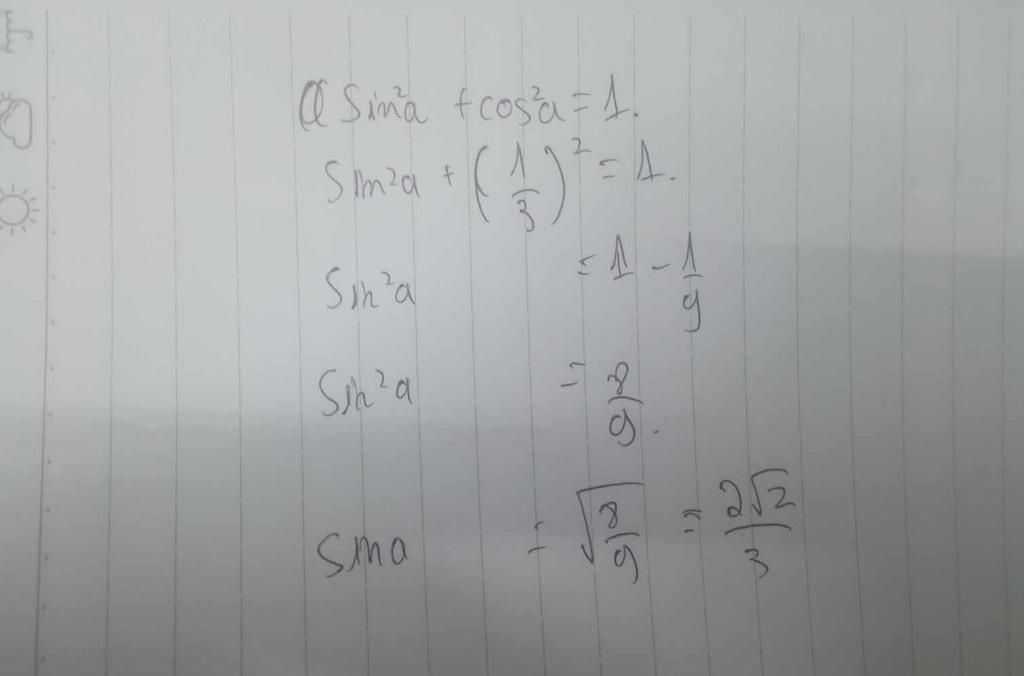 sin²a + cos²a = 1.
sin²a + (1/3)² = 1.
sin²a = 1 - 1/9
sin²a = 8/9.
sina = √(8/9) = 2√2/3